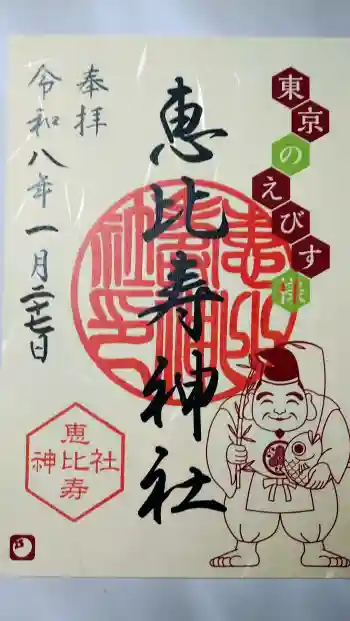 東京のえびす様
恵比寿神社
奉拝
令和八年一月二十七日
恵
神比社
寿